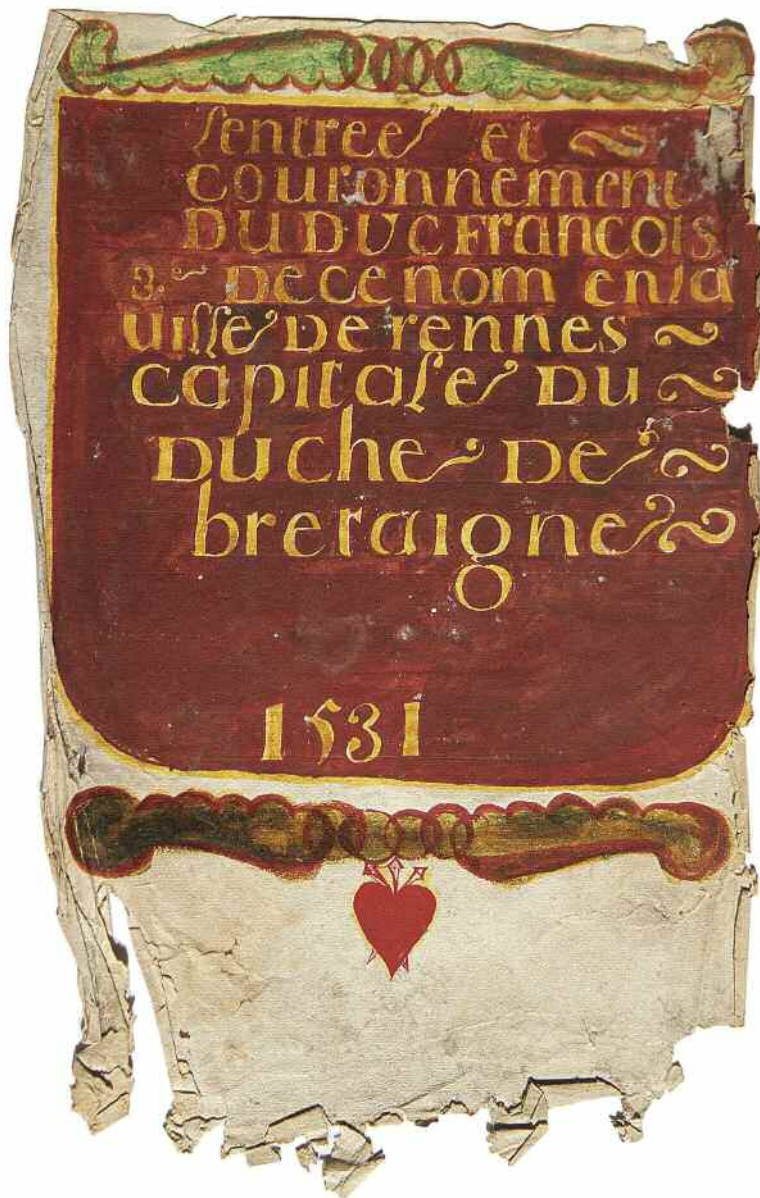 lentree et
couronnement
DU DUC Francois
3e DE CE nom en la
ville DE rennes
capitale DU
DUche DE
bretaigne
1531